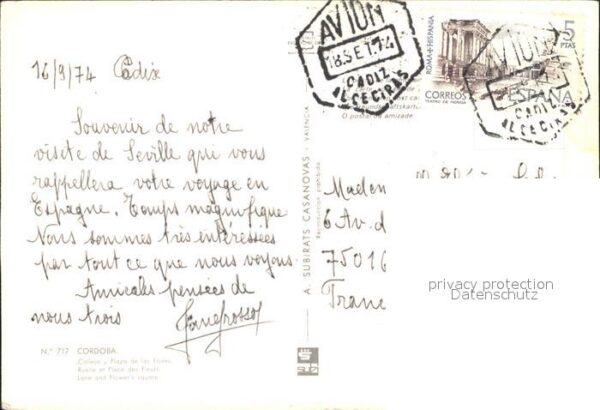 16/9/74 Cadix
Souvenir de notre
visite de Seville qui vous
rappellera votre voyage en
Espagne. Temps magnifique
Nous sommes très intéressées
par tout ce que nous voyons.
Amicales pensées de
nous trois
N.º 717 CORDOBA.
Calleja y Plaza de las Flores.
Ruelle et Place des Fleurs.
Lane and Flower's square.
A. SUBIRATS CASANOVAS - VALENCIA
Reproduction prohibida
O postal de amizade
AVION
18.SET.74
CADIZ
ALGECIRAS
ROMA+HISPANIA
5
PTAS
CORREOS
ESPAÑA
TEATRO DE MERIDA
AVION
CADIZ
ALGECIRAS
Madem
6 Av. d
75016
Franc
privacy protection
Datenschutz